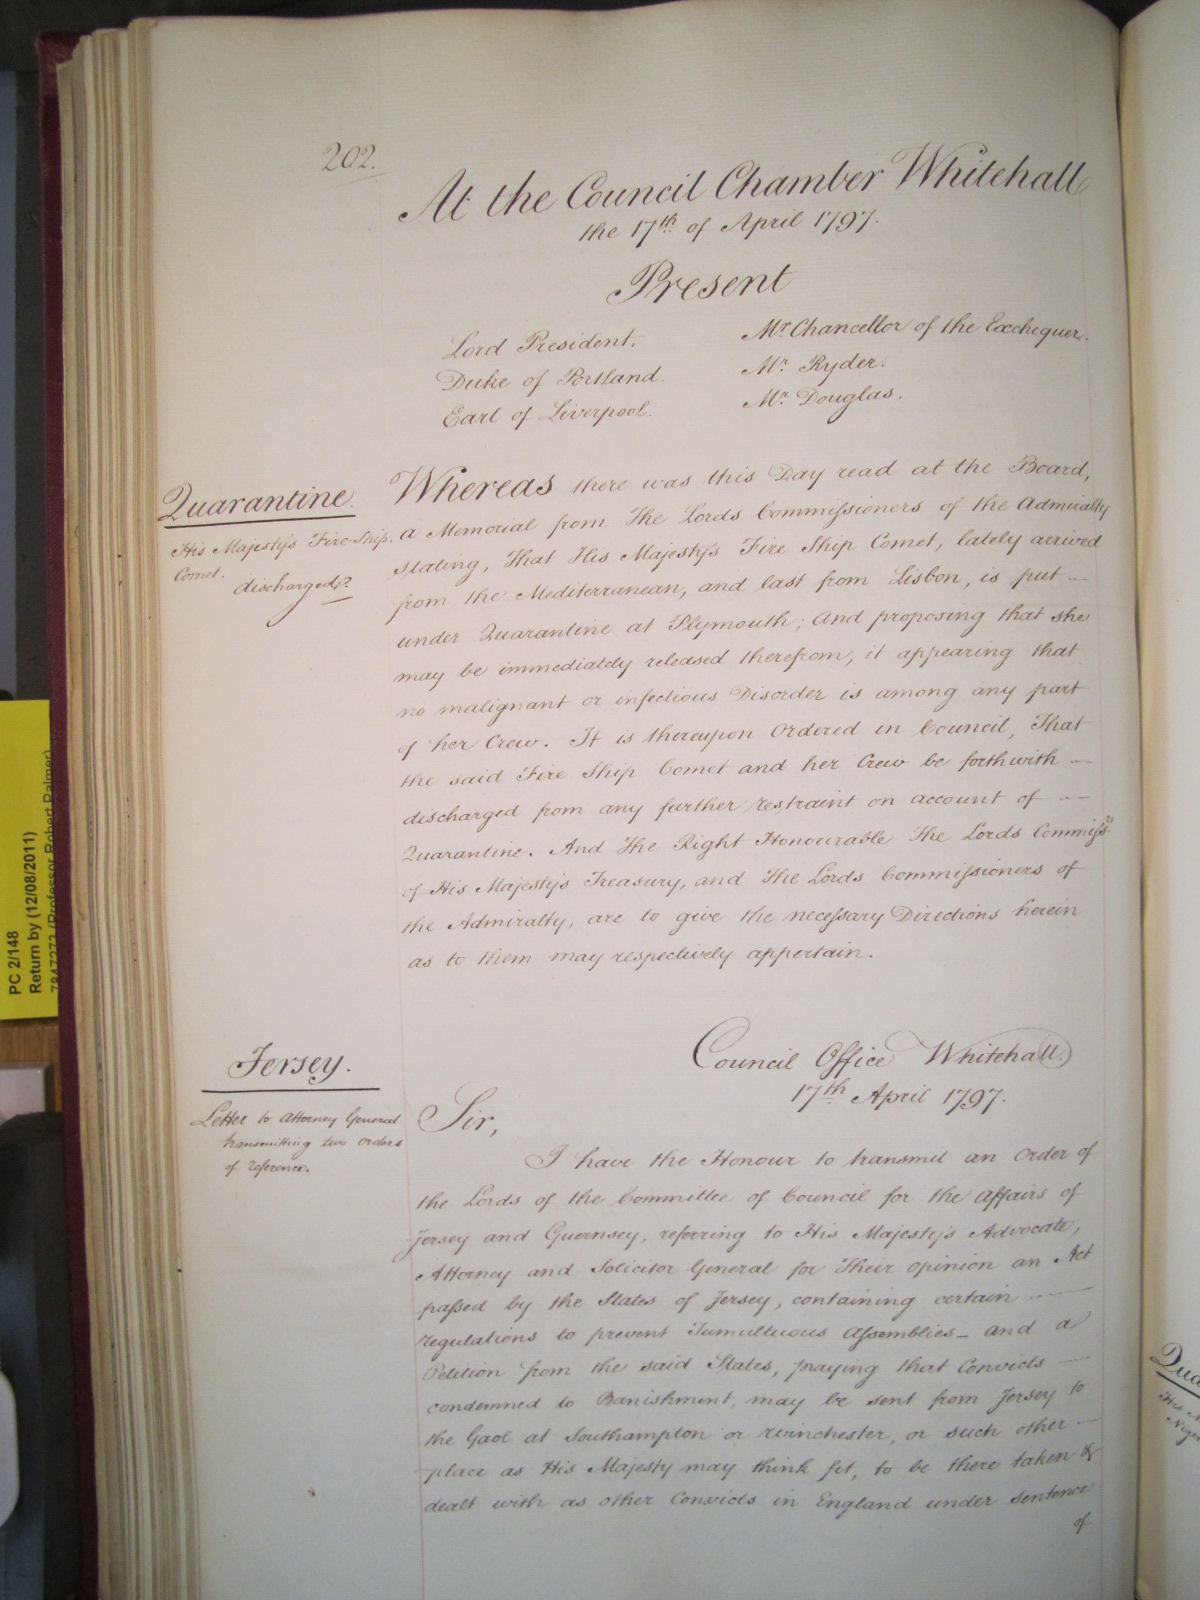 202.
At the Council Chamber Whitehall
the 17th of April 1797.
Present
Lord President.
Duke of Portland.
Earl of Liverpool.
Mr. Chancellor of the Exchequer.
Mr. Ryder.
Mr. Douglas.
Quarantine.
His Majesty's Fire-Ship.
Comet.
discharged.
Whereas there was this Day read at the Board,
a Memorial from The Lords Commissioners of the Admiralty
stating, That His Majesty's Fire Ship Comet, lately arrived
from the Mediterranean, and last from Lisbon, is put
under Quarantine at Plymouth; And proposing that she
may be immediately released therefrom, it appearing that
no malignant or infectious Disorder is among any part
of her Crew. It is thereupon Ordered in Council, That
the said Fire Ship Comet and her Crew be forthwith
discharged from any further restraint on account of
Quarantine. And The Right Honourable The Lords Commissrs.
of His Majesty's Treasury, and The Lords Commissioners of
the Admiralty, are to give the necessary Directions herein
as to them may respectively appertain.
Jersey.
Letter to Attorney General
transmitting two orders
of reference.
Council Office Whitehall.
17th April 1797.
Sir,
I have the Honour to transmit an Order of
the Lords of the Committee of Council for the Affairs of
Jersey and Guernsey, referring to His Majesty's Advocate,
Attorney and Solicitor General for Their opinion an Act
passed by the States of Jersey, containing certain
regulations to prevent Tumultuous Assemblies - and a
Petition from the said States, praying that Convicts
condemned to Banishment, may be sent from Jersey to
the Gaol at Southampton or Winchester, or such other
place as His Majesty may think fit, to be there taken &
dealt with as other Convicts in England under sentence
of
PC 2/148
Return by (12/08/2011)
7847272 (Professor Robert Palmer)